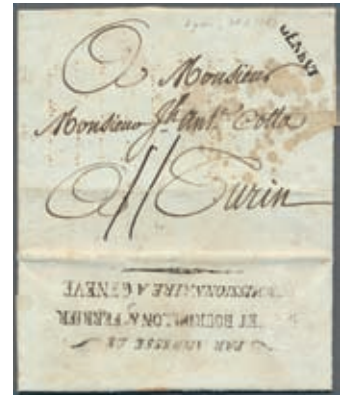 GENÈVE
A Monsieur
Monsieur Jh. Ant. Cotta
A Turin
PAR ADRESSE DE
ET BOURDILLON & FERRIER
COMMISSIONNAIRE A GENEVE